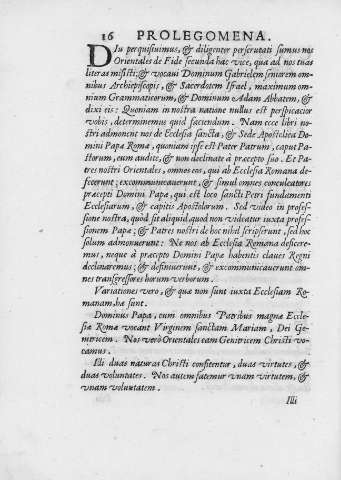 16 PROLEGOMENA.
DIu perquisiuimus, & diligenter perscrutati sumus nos
Orientales de Fide secunda hac vice, qua ad nos tuas
literas misisti; & vocaui Dominum Gabrielem seniorem om-
nibus Archiepiscopis, & Sacerdotem Israel, maximum om-
nium Grammaticorum, & Dominum Adam Abbatem, &
dixi eis: Quoniam in nostra natione nullus est perspicacior
vobis, determinemus quid faciendum. Nam ecce libri no-
stri admonent nos de Ecclesia sancta, & Sede Apostolica Do-
mini Papæ Romæ, quoniam ipse est Pater Patrum, caput Pa-
storum, eum audite, & non declinate à præcepto suo. Et Pa-
tres nostri Orientales, omnes eos, qui ab Ecclesia Romana de-
fecerunt; excommunicauerunt, & simul omnes conculcatores
præcepti Domini Papæ, qui est loco sancti Petri fundamenti
Ecclesiarum, & capitis Apostolorum. Sed video in profes-
sione nostra, quòd sit aliquid, quod non videatur iuxta profes-
sionem Papæ; & Patres nostri de hoc nihil scripserunt, sed hoc
solum admonuerunt: Ne nos ab Ecclesia Romana desicere-
mus, neque à præcepto Domini Papæ habentis claues Regni
declinaremus; & definierunt, & excommunicauerunt om-
nes transgressores horum verborum.
Variationes verò, & quæ non sunt iuxta Ecclesiam Ro-
manam, hæ sunt.
Dominus Papa, cum omnibus Patribus magnæ Eccle-
siæ Romæ vocant Virginem sanctam Mariam, Dei Ge-
nitricem. Nos verò Orientales eam Genitricem Christi vo-
camus.
Illi duas naturas Christi confitentur, duas virtutes, &
duas voluntates. Nos autem fatemur vnam virtutem, &
vnam voluntatem.
Illi